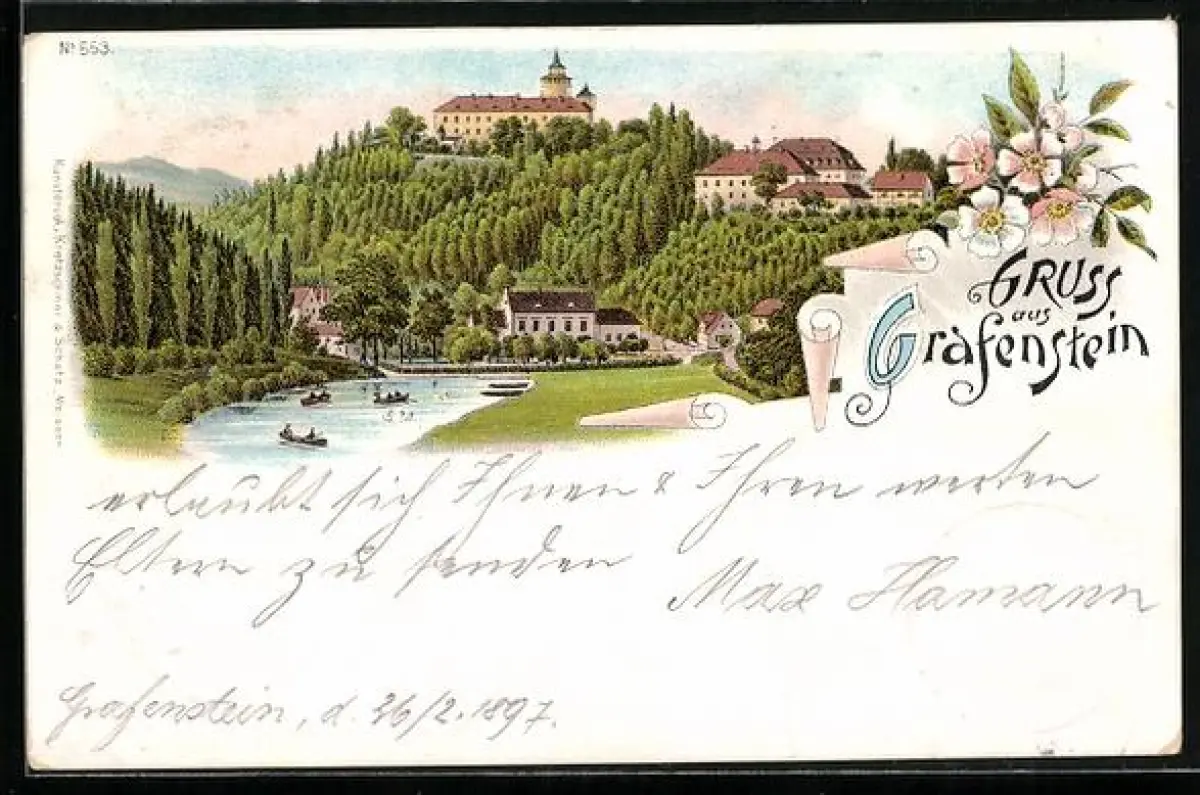 Nº 553.
GRUSS
aus
Gräfenstein
erlaubt sich Ihnen & Ihren werten
Eltern zu senden
Max Hamann
Grafenstein, d. 26/2. 1897.